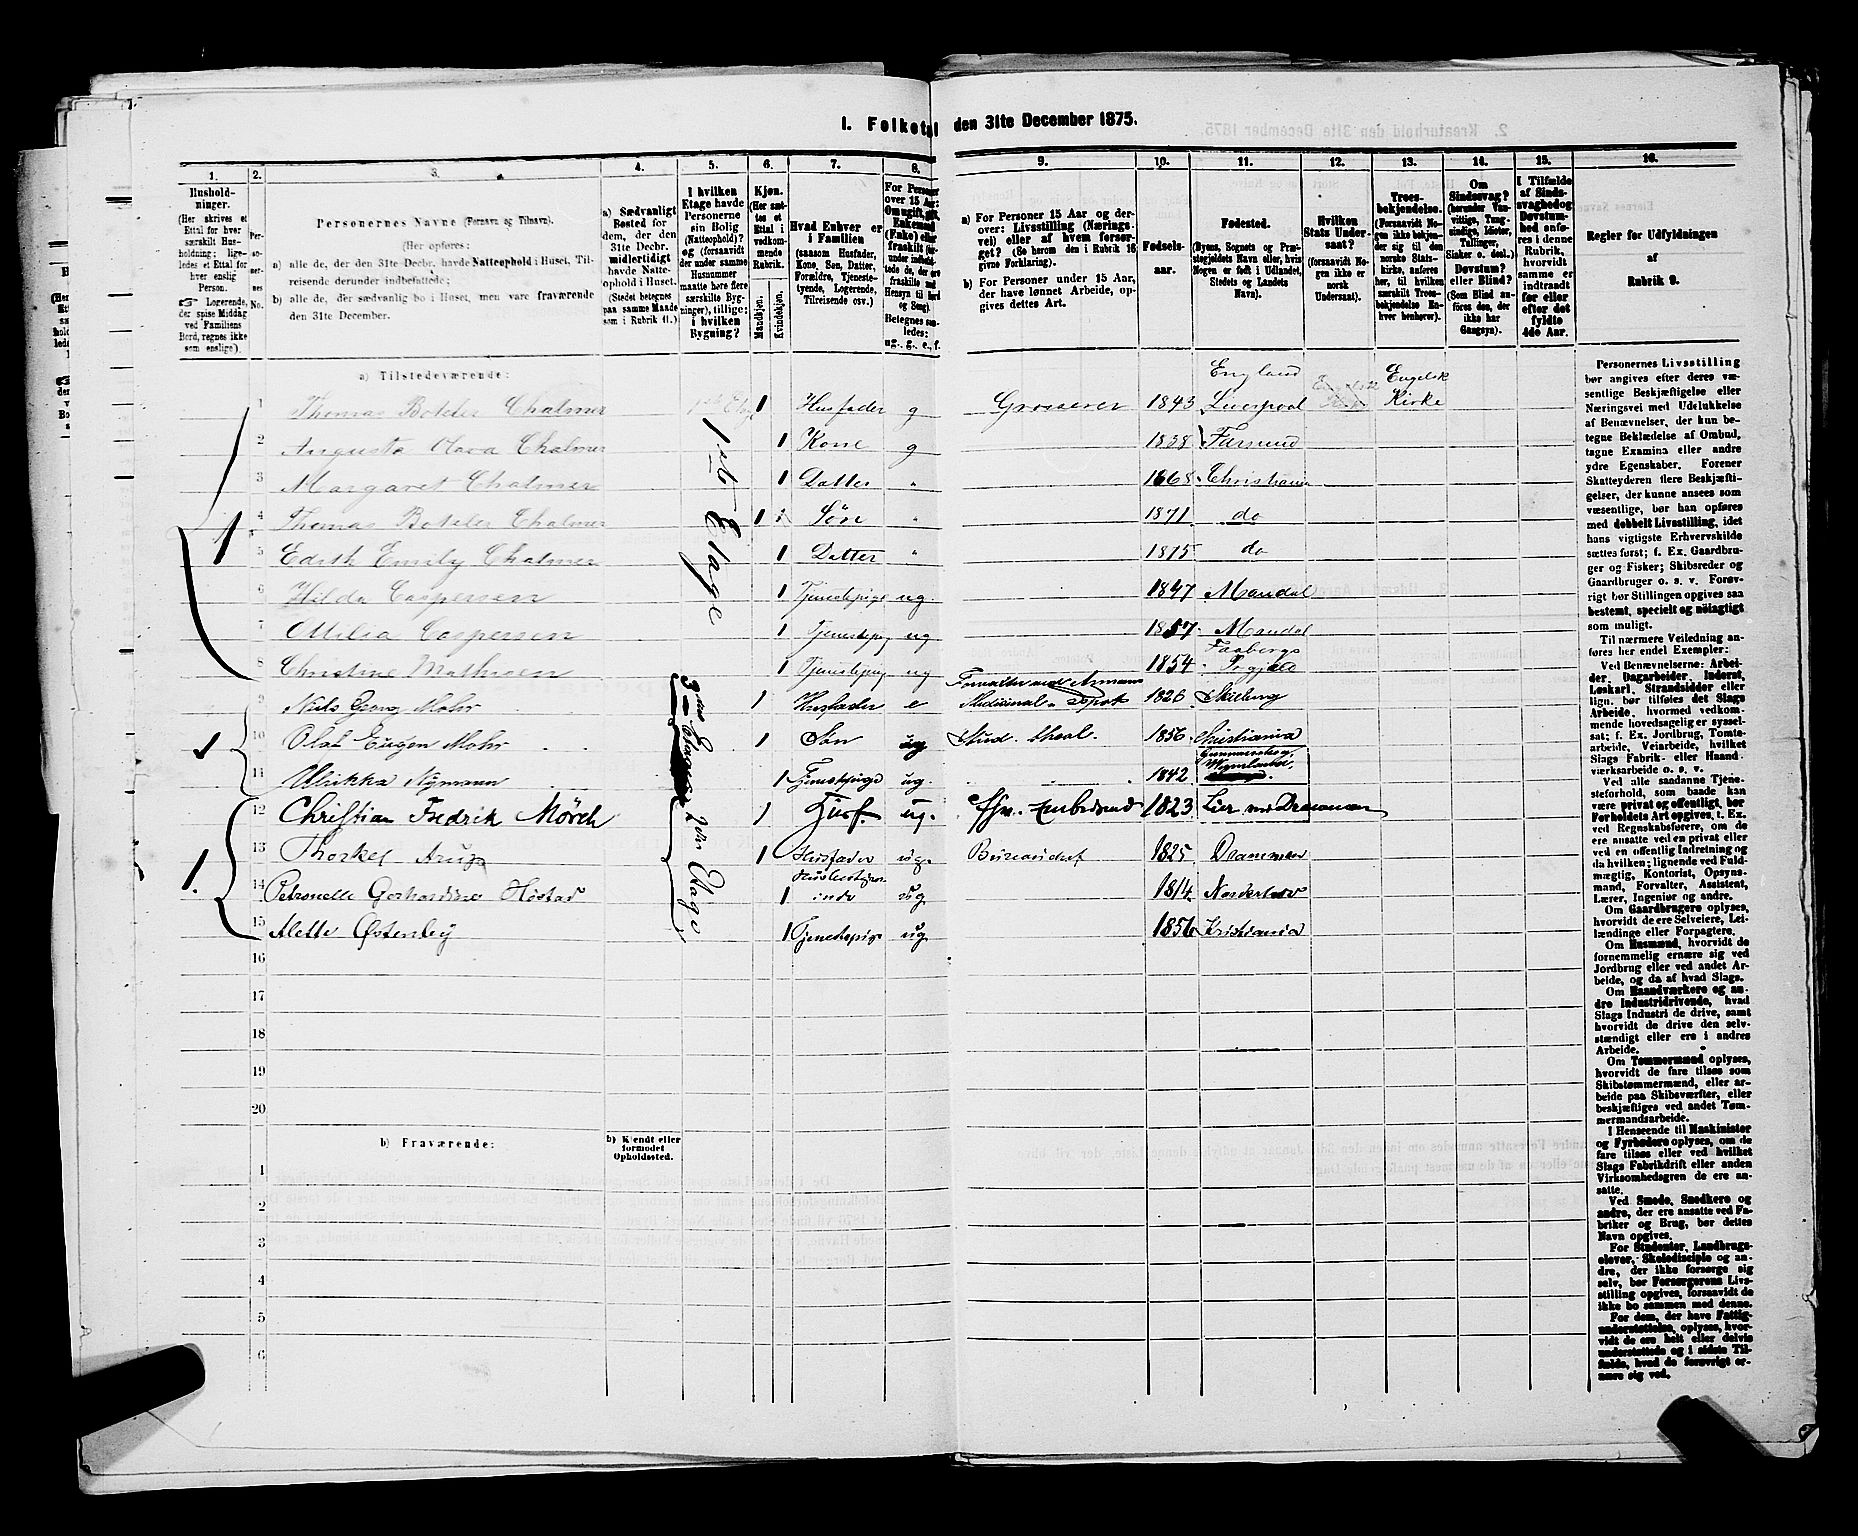 I. Folketal den 31te December 1875.
1. 2. 3. 4. 5. 6. 7. 8. 9. 10. 11. 12. 13. 14. 15. 16.
Husholdninger.
(Her skrives et
Ettal for hver
særskilt Husholdning;
ligeledes et Ettal for
hver enslig
Person.
Logerende,
der spise Middag
ved Familiens
Bord, regnes ikke
som enslige).
Personernes No.
Personernes Navne (Fornavn og Tilnavn).
(Her opføres:
a) alle de, der den 31te Decbr. havde Natteophold i Huset, Tilreisende derunder indbefattede;
b) alle de, der sædvanlig bo i Huset, men vare fraværende den 31te December.
a) Sædvanligt
Bosted for
dem, der den
31te Decbr.
midlertidigt
havde Natteophold i Huset.
(Stedet betegnes
paa samme Maade
som i Rubrik 11.)
I hvilken
Etage havde
Personerne
sin Bolig
(Natteophold)?
og (forsaavidt
der under samme
Husnummer
maatte høre flere
særskilte Bygninger), tillige:
i hvilken
Bygning?
Kjøn.
(Her sættes et
Ettal i
vedkommende
Rubrik.
Mandkjøn.
Kvindekjøn.
Hvad Enhver er
i Familien
(saasom Husfader,
Kone, Søn, Datter,
Forældre, Tjenestetyende, Logerende,
Tilreisende osv.)
For Personer
over 15 Aar:
Om ugift, gift,
Enkemand
(Enke) eller
fraskilt
Betegnes saaledes:
ug., g., e., f.
a) For Personer 15 Aar og derover: Livsstilling (Næringsvei) eller af hvem forsørget? (Se herom den i Rubrik 16
givne Forklaring).
b) For Personer under 15 Aar,
der have lønnet Arbeide, opgives dettes Art.
Fødselsaar.
Fødested.
(Byens, Sognets og Præstegjeldets Navn eller, hvis
Nogen er født i Udlandet,
Stedets og Landets
Navn).
Hvilken
Stats Undersaat?
(forsaavidt Nogen ikke er
norsk
Undersaat).
Troesbekjendelse.
(Forsaavidt Nogen ikke bekjender sig til den
norske Statskirke, anføres
her, til hvilken
særskilt Troesbekjendelse Enhver henhører).
Om
Sindssvag?
(herunder Vanvittige, Tungsindige, Idioter,
Tullinger,
Sinker o. desl.)
Døvstum?
eller Blind?
(Som Blind anføres den, der
ikke har
Gangsyn).
I Tilfælde
af Sindssvaghed og
Døvstumhed anføres i denne
Rubrik,
hvorvidt
samme er
indtraadt
før eller
efter det
fyldte
4de Aar.
Regler for Udfyldningen
af
Rubrik 9.
a) Tilstedeværende:
1 Thomas Boteler Chalmer 1 Husfader g Grosserer 1843 England Liverpool Engelsk Kirke
2 Augusta Chalmer 1 Kone g 1838 Farsund
3 Margaret Chalmer 1 Datter 1868 Christiania
1 4 Thomas Boteler Chalmer 1 Søn 1871 do
5 Edith Emily Chalmer 1 Datter 1875 do
1ste Etage
6 Hilda Caspersen 1 Tjenestepige ug. 1847 Mandal
7 Otilia Caspersen 1 Tjenestepig ug 1857 Mandal
8 Christine Mathisen 1 Tjenestepig ug 1854 Faabergs Prgjeld
9 Niels Georg Mohr 1 Husfader e Forvalter ved Medicinal Depot 1826
1 10 Olaf Eugen Mohr 1 Søn ug Stud. theol. 1856 Christiania
11 Ulrikka Nymann 1 Tjenestepige ug. 1842
12 Christian Fredrik Mörch 1 Husf. ug. Embedsmd 1823 Lier ved Drammen
13 Thorkel Arup 1 Husfader ug. Bureauchef 1825 Drammen
2den Etage
1. 14 Petronelle Gerhardine Høstad 1 ug. 1814
15 Alette Østenby 1 Tjenestepige ug 1856 Kristiania
16
17
18
19
20
b) Fraværende:
b) Kjendt eller
formodet
Opholdssted.
1
2
3
4
5
6
Personernes Livsstilling
bør angives efter deres væsentlige Beskjæftigelse eller
Næringsvei med Udelukkelse
af Benævnelser, der kun betegne Beklædelse af Ombud,
tagne Examina eller andre
ydre Egenskaber. Forener
Skatteyderen flere Beskjæftigelser, der kunne ansees som
væsentlige, bør han opføres
med dobbelt Livsstilling, idet
hans vigtigste Erhvervskilde
sættes først; f. Ex. Gaardbruger og Fisker; Skibsreder og
Gaardbruger o. s. v. Forøvrigt bør Stillingen opgives saa
bestemt, specielt og nøiagtigt
som muligt.
Til nærmere Veiledning anføres her endel Exempler:
Ved Benævnelserne: Arbeider, Dagarbeider, Inderst,
Løskarl, Strandsidder eller
lign. bør tilføies det Slags
Arbeide, hvormed vedkommende hovedsagelig er sysselsat; f. Ex. Jordbrug, Tomtearbeide, Veiarbeide, hvilket
Slags Fabrik- eller Haandværksarbeide o. s. v.
Ved alle saadanne Tjenesteforhold, som baade kan
være privat og offentligt, bør
Forholdets Art opgives, f. Ex.
ved Regnskabsførere, om de
ere ansatte ved en privat eller
ved en offentlig Indretning og
da hvilken; lignende ved Fuldmægtig, Kontorist, Opsynsmand, Forvalter, Assistent,
Lærer, Ingeniør og andre.
Om Gaardbrugere oplyses,
hvorvidt de ere Selveiere, Leilændinge eller Forpagtere.
Om Husmænd, hvorvidt de
fornemmelig ernære sig ved
Jordbrug eller ved andet Arbeide, og da af hvad Slags.
Om Haandværkere og andre Industridrivende, hvad
Slags Industri de drive, samt
hvorvidt de drive den selvstændigt eller ere i andres
Arbeide.
Om Tømmermænd oplyses,
hvorvidt de fare tilsøs som
Skibstømmermænd, eller arbeide paa Skibsværfter, eller
beskjæftiges ved andet Tømmermandsarbeide.
I Henseende til Maskinister
og Fyrbødere oplyses, om de
fare tilsøs eller ved hvilket
Slags Fabrikdrift eller anden
Virksomhedsgren de ere ansatte.
Ved Smede, Snedkere og
andre, der ere ansatte ved Fabriker og Brug, bør dettes
Navn opgives.
For Studenter, Landbrugselever, Skoledisciple og andre, der ikke forsørge sig
selv, bør Forsørgerens Livsstilling opgives, forsaavidt de
ikke bo sammen med denne.
For dem, der have Fattigunderstøttelse, oplyses, hvorvidt de ere helt eller delvis
understøttede og i sidste Tilfælde, hvad de forøvrigt ernære sig ved.